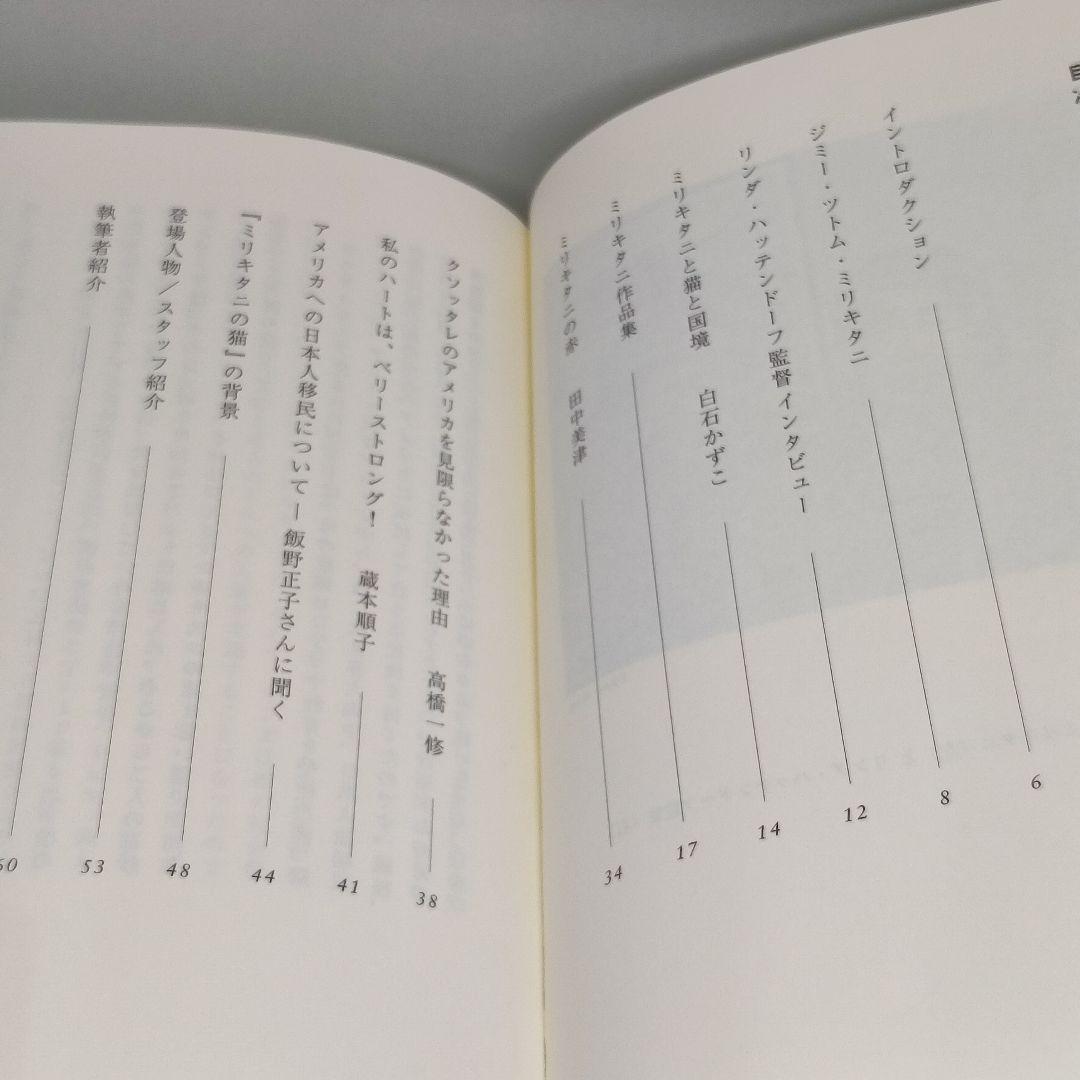 目次
イントロダクション 6
ジミー・ツトム・ミリキタニ 8
リンダ・ハッテンドーフ監督インタビュー 12
ミリキタニと猫と国境 白石かずこ 14
ミリキタニ作品集 17
ミリキタニの赤 田中美津 34
クソッタレのアメリカを見限らなかった理由 高橋一修 38
私のハートは、ベリーストロング! 蔵本順子 41
アメリカへの日本人移民について— 飯野正子さんに聞く 44
『ミリキタニの猫』の背景 48
登場人物/スタッフ紹介 53
執筆者紹介 60